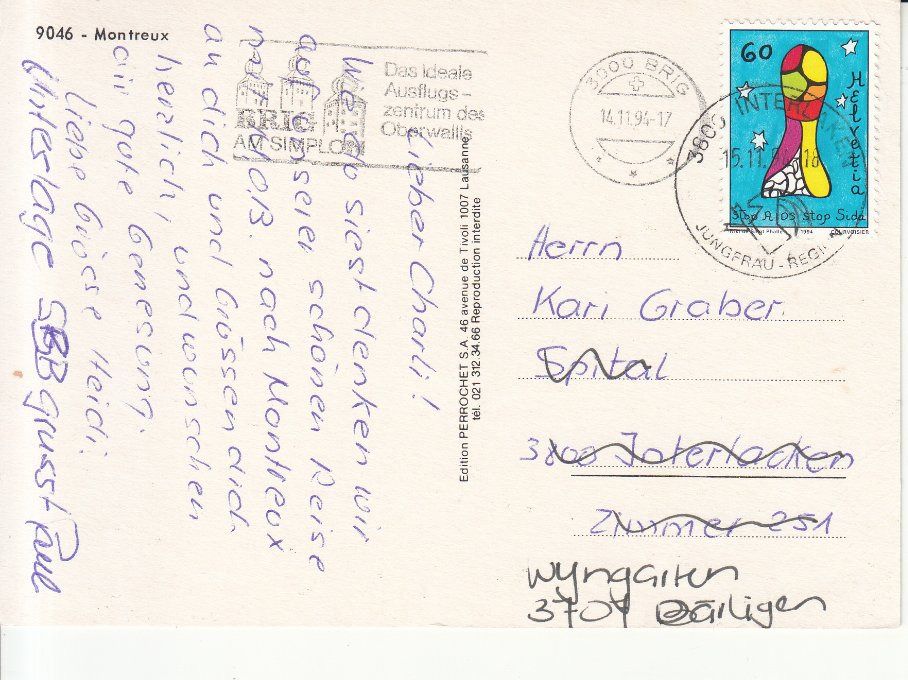 9046 - Montreux
Lieber Charli!
Wie du siest denken wir
auf unserer schönen Reise
nach Montreux
an dich und Grüssen dich
herzlich, und wünschen
dir gute Genesung.
Liebe Grüsse Heidi.
SBB grusst Paul
BRIG
AM SIMPLON
Das ideale
Ausflugs-
zentrum des
Oberwallis
3900 BRIG
14.11.94-17
3800 INTERLAKEN
15.11.94-18
JUNGFRAU-REGION
60
Helvetia
Stop AIDS Stop Sida
1994
COURVOISIER
Edition PERROCHET S.A. 46 avenue de Tivoli 1007 Lausanne
tél. 021 312.34.66 Reproduction interdite
Herrn
Kari Graber
Spital
3800 Interlacken
Zimmer 251
Wyngarten
3707 Därligen